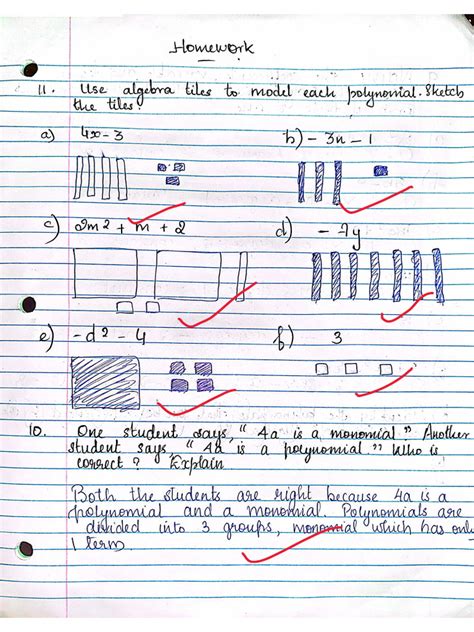 Homework
11. Use algebra tiles to model each polynomial. Sketch
the tiles?
a) 4x - 3 b) - 3n - 1
c) 2m² + m + 2 d) - 7y
e) -d² - 4 f) 3
10. One student says, " 4a is a monomial " Another
student says " 4a is a polynomial " Who is
correct ? Explain
Both the students are right because 4a is a
polynomial and a monomial. Polynomials are
divided into 3 groups, monomial which has only
1 term.